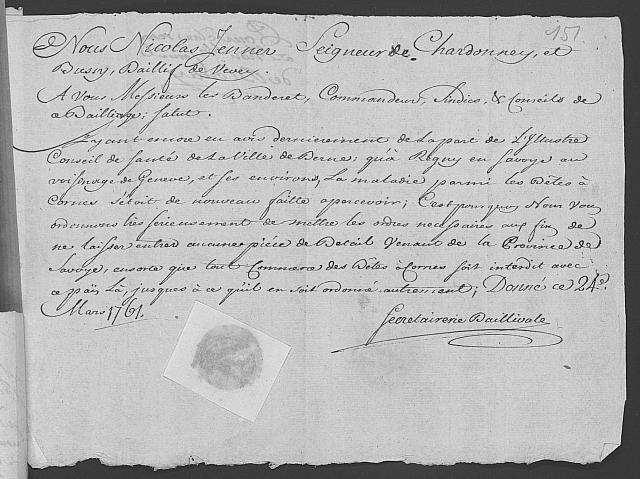 151.
Nous Nicolas Jenner Seigneur de Chardonney, et
Bussy, Baillif de Vevey
A Vous Messieurs les Banderet, Commandeur, Sindics, & Conseils de
ce Bailliage; salut.
Ayant encore eu avis dernierement de la part de L'Illustre
Conseil de santé de La Ville de Berne; qu'à Regny en Savoye au
voisinage de Geneve, et ses environs, La maladie parmi les Bêtes à
Cornes s'étoit de nouveau faitte apercevoir; C'est pourquoy Nous Vous
ordonnons très serieusement de mettre les ordres necessaires aux fin de
ne laisser entrer aucune piéce de Betail Venant de la Province de
Savoye, ensorte que tout Commerce des Bêtes à Cornes soit interdit avec
ce païs Là, jusques à ce qu'il en soit ordonné autrement; Donné ce 24e.
Mars 1761.
Secretairerie Baillivale